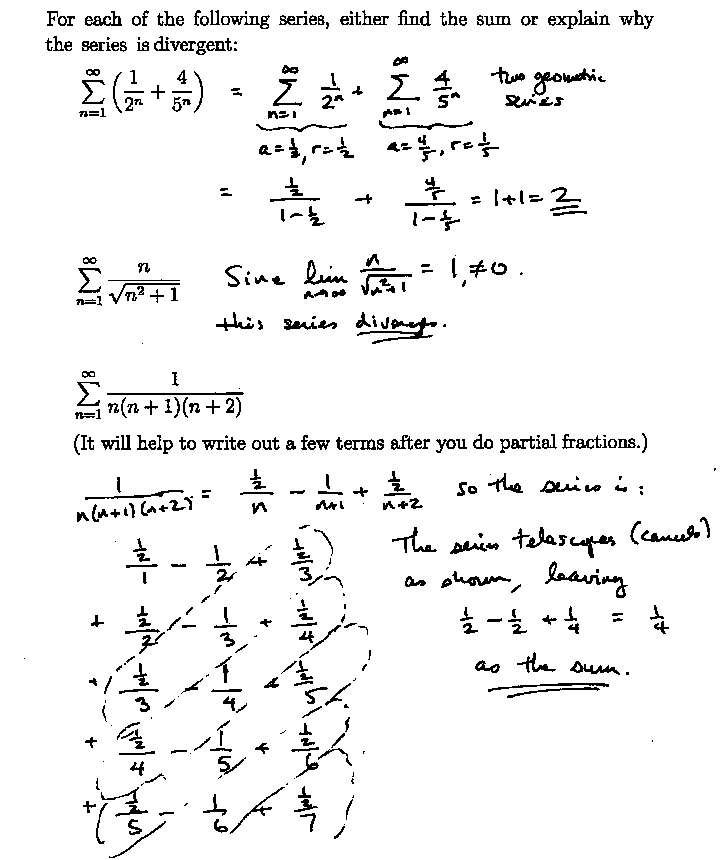 For each of the following series, either find the sum or explain why
the series is divergent:
∑_{n=1}^{∞} (1/2^n + 4/5^n) = ∑_{n=1}^{∞} 1/2^n + ∑_{n=1}^{∞} 4/5^n two geometric series
a = 1/2, r = 1/2 a = 4/5, r = 1/5
= (1/2)/(1 - 1/2) + (4/5)/(1 - 1/5) = 1 + 1 = 2
∑_{n=1}^{∞} n/√(n² + 1) Since lim_{n→∞} n/√(n²+1) = 1, ≠ 0.
this series diverges.
∑_{n=1}^{∞} 1/(n(n + 1)(n + 2))
(It will help to write out a few terms after you do partial fractions.)
1/(n(n+1)(n+2)) = (1/2)/n - 1/(n+1) + (1/2)/(n+2) so the series is:
(1/2)/1 - 1/2 + (1/2)/3 The series telescopes (cancels)
as shown, leaving
+ (1/2)/2 - 1/3 + (1/2)/4 1/2 - 1/2 + 1/4 = 1/4
+ (1/2)/3 - 1/4 + (1/2)/5 as the sum.
+ (1/2)/4 - 1/5 + (1/2)/6
+ (1/2)/5 - 1/6 + (1/2)/7